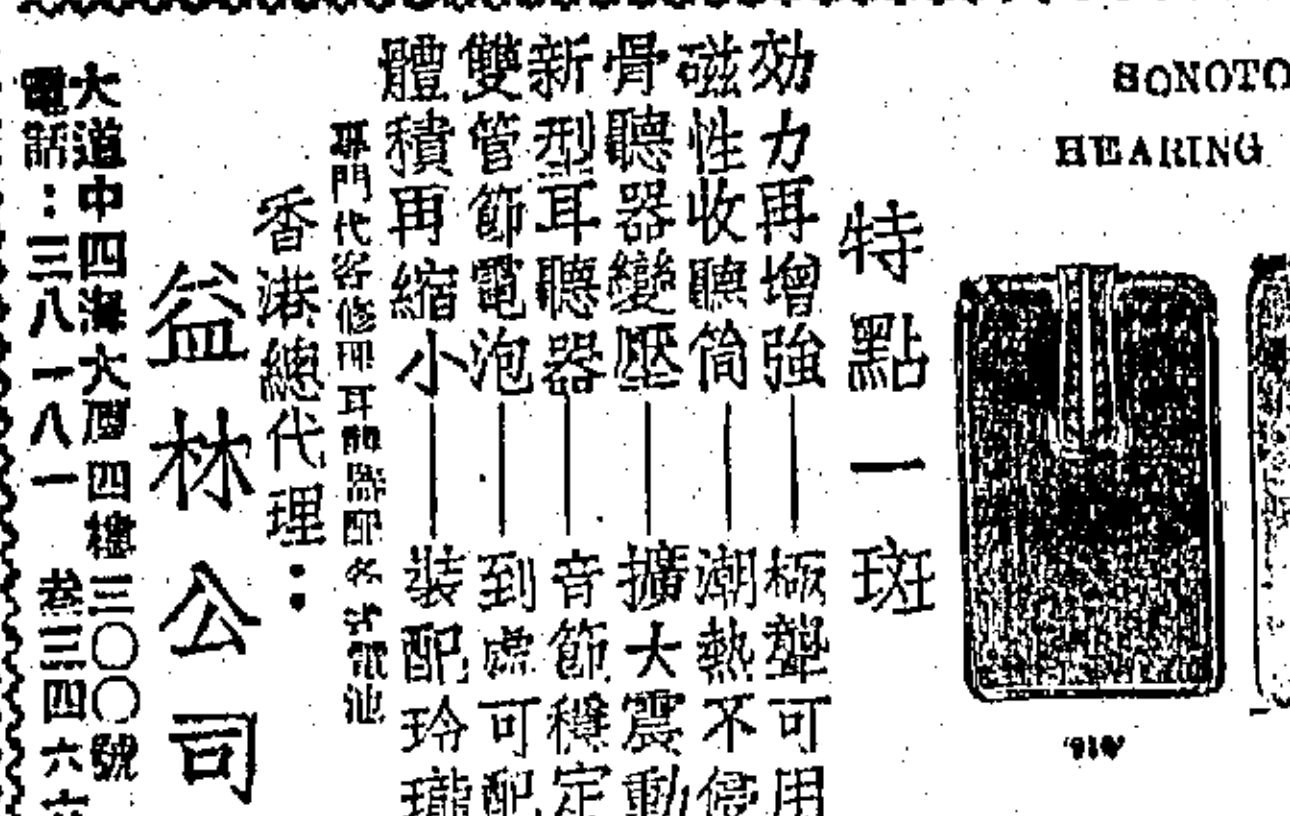 HEARING
特點一斑
効力再增強——極聾可用
磁性收聽筒——潮熱不侵
骨聽器變壓——擴大震動
新型耳聽器——音節穩定
雙管節電泡——到處可配
體積再縮小——裝配玲瓏
專門代客修理耳聽器配各號電池
香港總代理：
益林公司
大道中四海大廈四樓三〇〇號
電話：三八一八一 叁三四六六